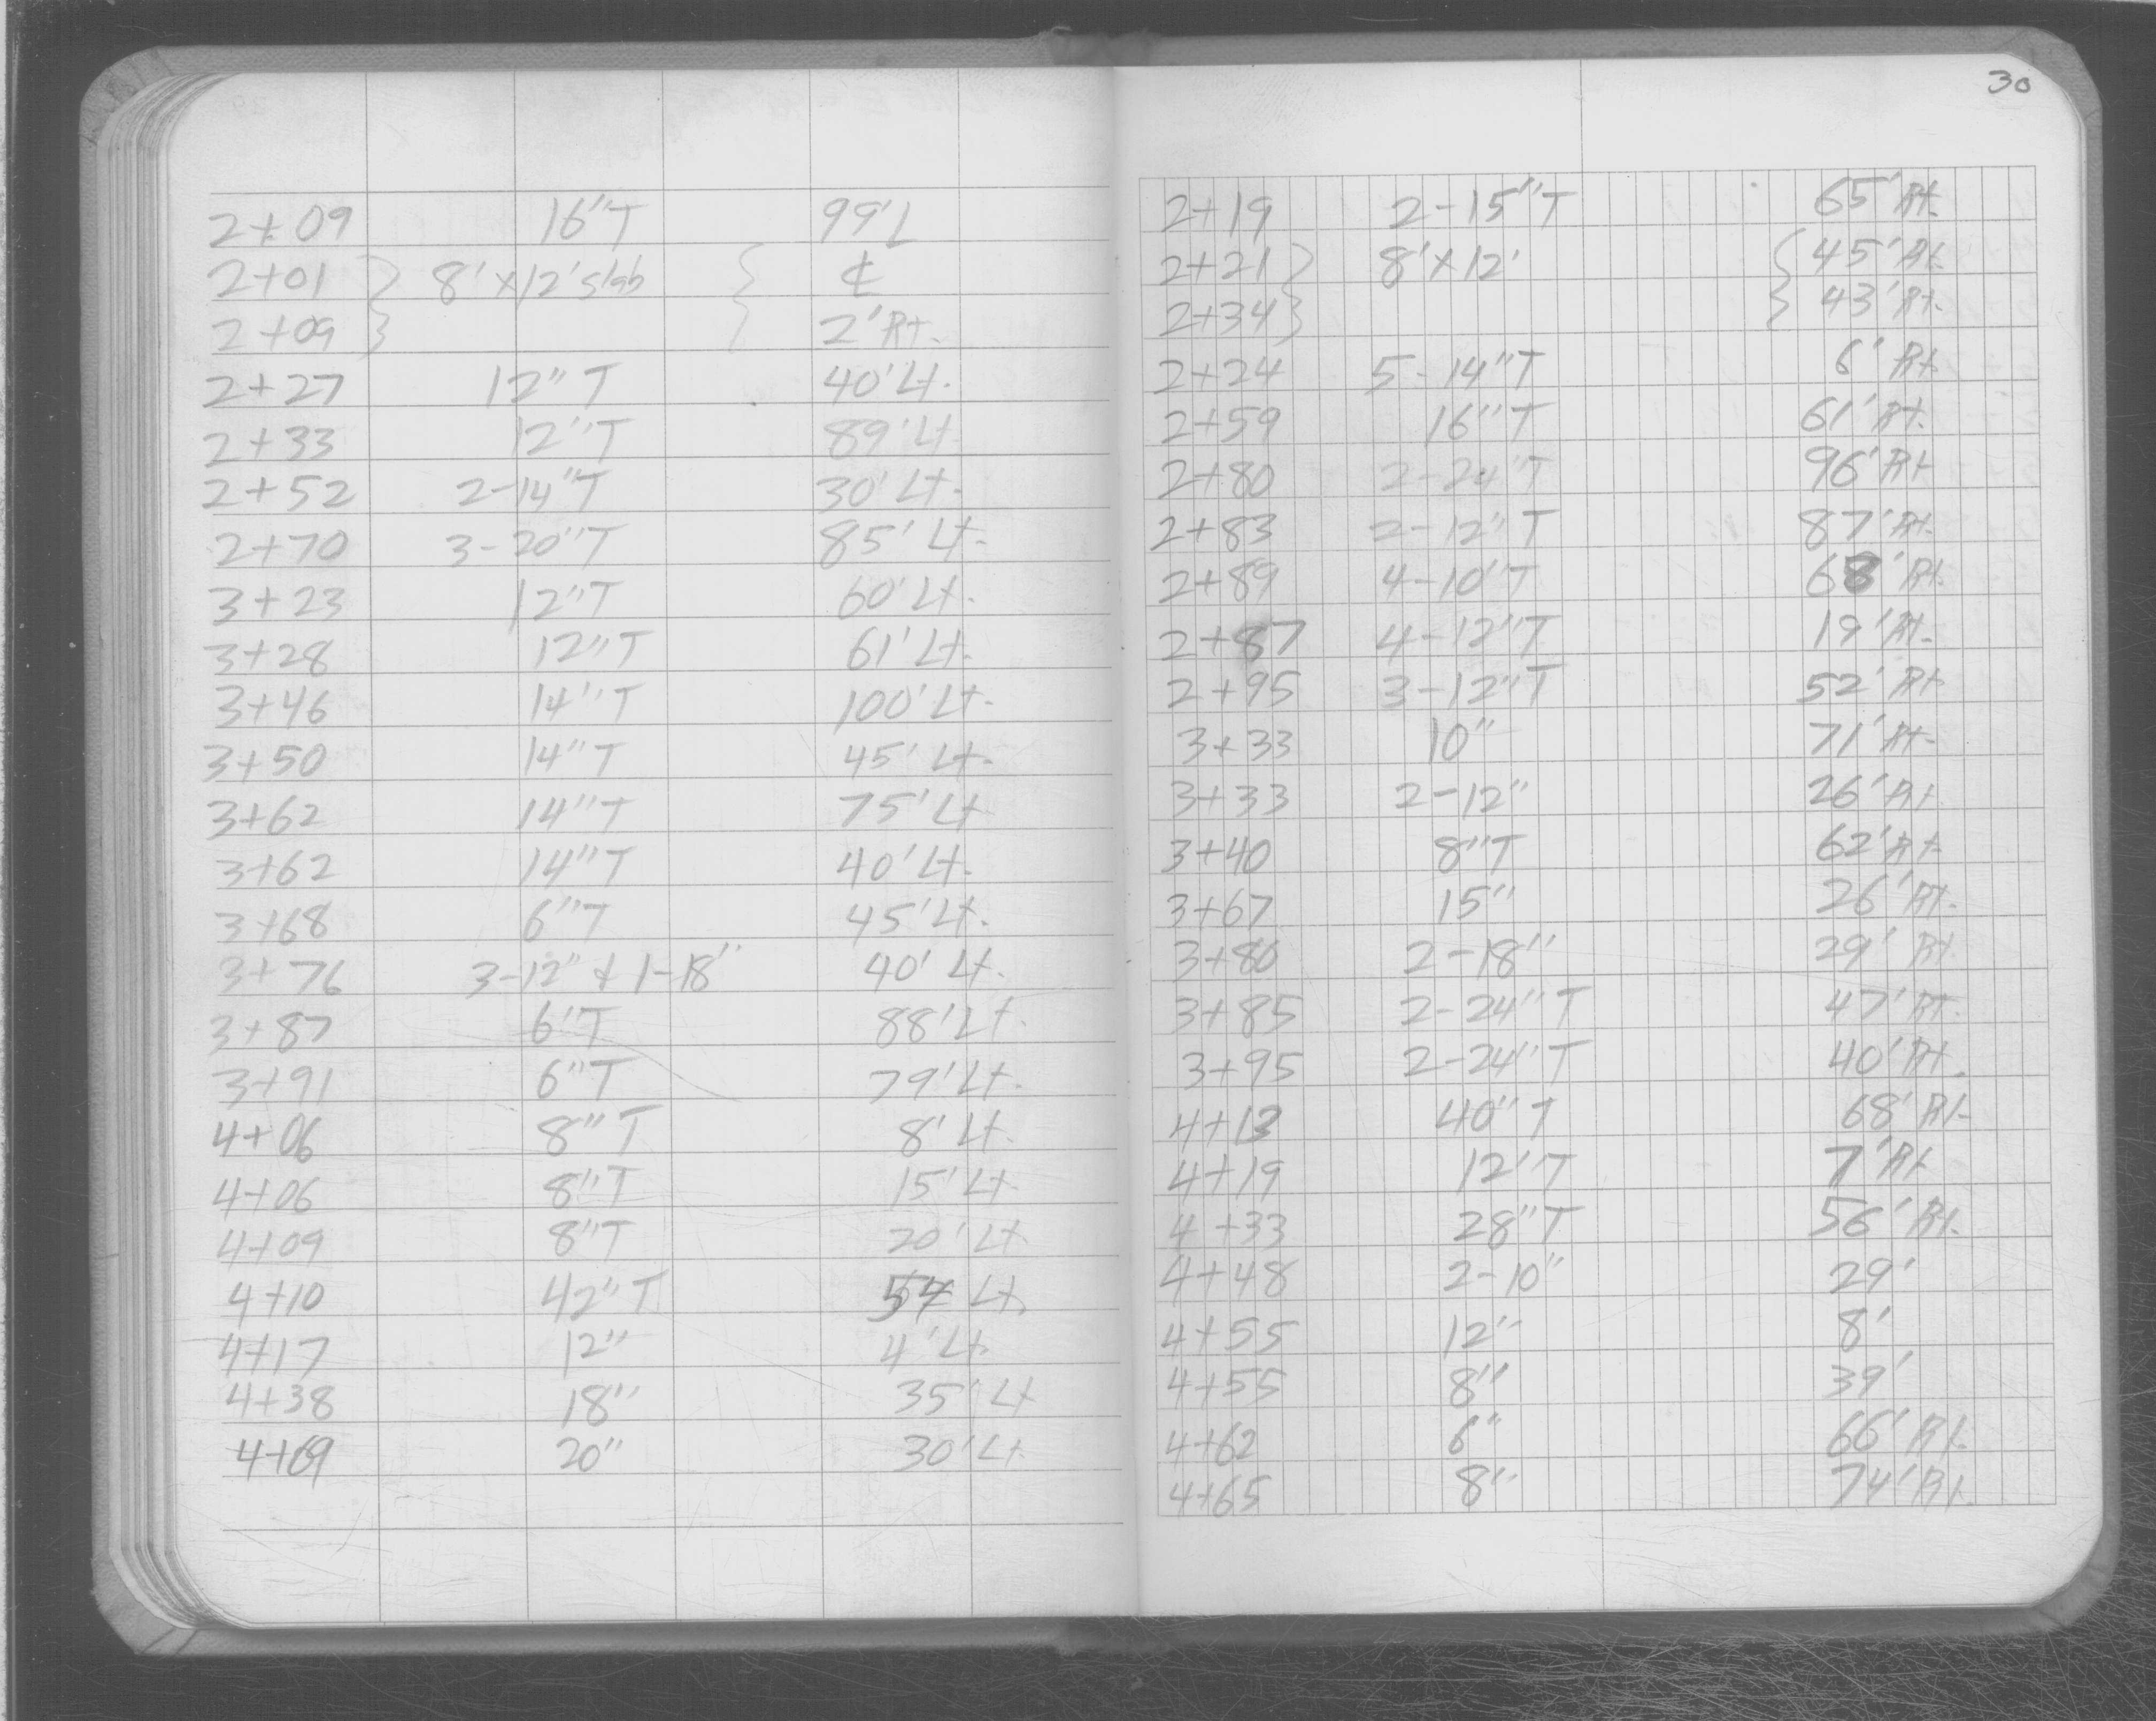 2+09 16"T 99'L
2+01 } 8'x12' slab { ℄
2+09 } { 2' Rt.
2+27 12" T 40' Lt.
2+33 12"T 89' Lt
2+52 2-14"T 30' Lt.
2+70 3-20"T 85' Lt.
3+23 12"T 60' Lt.
3+28 12"T 61' Lt.
3+46 14"T 100' Lt.
3+50 14"T 45' Lt.
3+62 14"T 75' Lt
3+62 14"T 40' Lt.
3+68 6"T 45' Lt.
3+76 3-12" & 1-18" 40' Lt.
3+87 6'T 88' Lt.
3+91 6"T 79' Lt.
4+06 8"T 8' Lt.
4+06 8"T 15' Lt.
4+09 8"T 20' Lt
4+10 42"T Lt.
4+17 12" 4' Lt.
4+38 18" 35' Lt
4+69 20" 30' Lt.
30
2+19 2-15"T 65' Rt.
2+21 } 8'x12' { 45' Rt.
2+34 } { 43' Rt.
2+24 5-14"T 6' Rt
2+59 16"T 61' Rt.
2+80 2-24"T 96' Rt
2+83 2-12"T 87' Rt.
2+89 4-10'T 68' Rt.
2+87 4-12"T 19' Rt.
2+95 3-12"T 52' Rt
3+33 10" 71' Rt.
3+33 2-12" 26' Rt
3+40 8"T 62' Rt.
3+67 15" 26' Rt.
3+80 2-18" 29' Rt
3+85 2-24"T 47' Rt.
3+95 2-24"T 40' Rt.
4+13 40"T 68' Rt.
4+19 12'T 7' Rt
4+33 28"T 56' Rt.
4+48 2-10" 29'
4+55 12" 8'
4+55 8" 39'
4+62 6" 66' Rt.
4+65 8" 74' Rt.